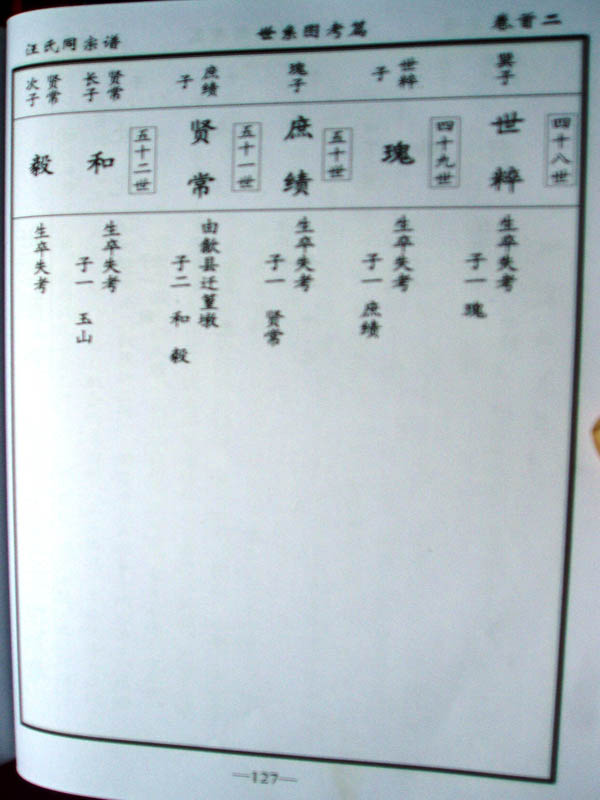 卷首二
世系图考篇
汪氏同宗谱
四十八世
巽子
世粹
生卒失考
子一 瑰
四十九世
世粹子
瑰
生卒失考
子一 庶绩
五十世
瑰子
庶绩
生卒失考
子一 贤常
五十一世
庶绩子
贤常
由歙县迁篁墩
子二 和 毅
五十二世
贤常长子
和
生卒失考
子一 玉山
贤常次子
毅
生卒失考
—127—